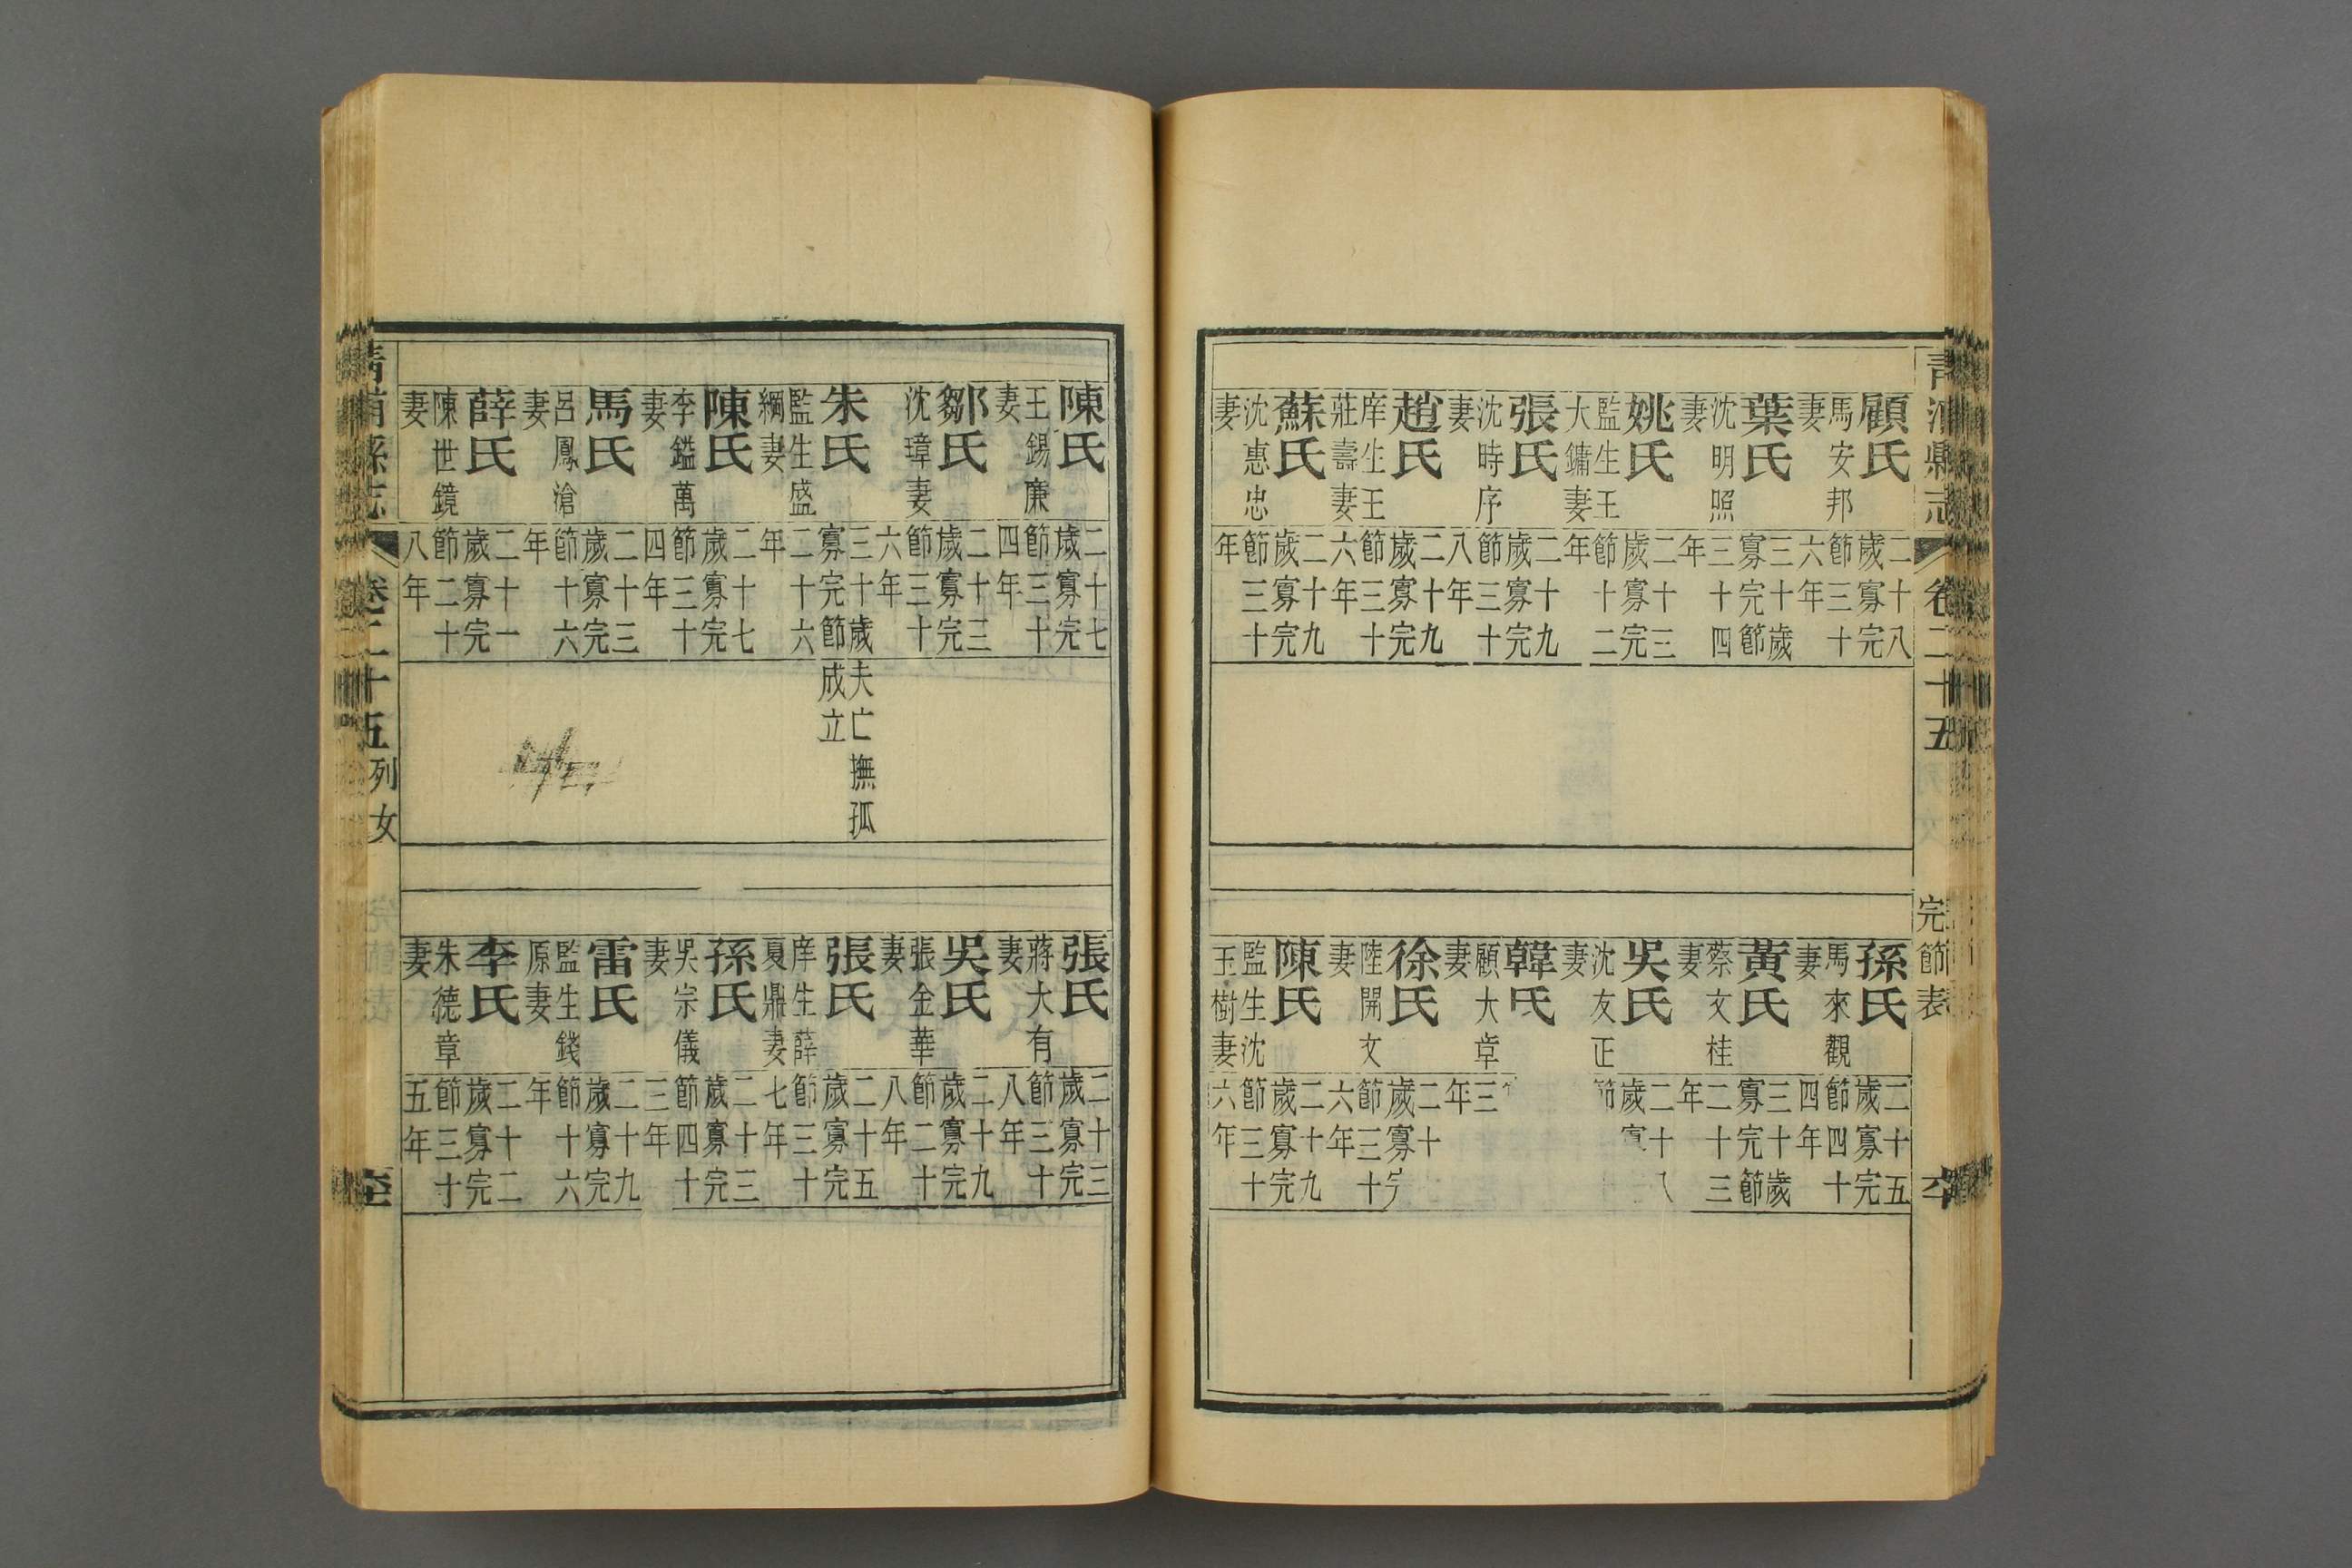 青浦縣志
卷二十五
完節表
顧氏
馬安邦
妻
二十八
歲寡完
節三十
六年
葉氏
沈明照
妻
三十歲
寡完節
三十四
年
姚氏
監生王
大鏞妻
二十三
歲寡完
節十二
年
張氏
沈時序
妻
二十九
歲寡完
節三十
八年
趙氏
庠生王
莊壽妻
二十九
歲寡完
節三十
六年
蘇氏
沈惠忠
妻
二十九
歲寡完
節三十
年
孫氏
馬來觀
妻
二十五
歲寡完
節四十
四年
黃氏
蔡文桂
妻
三十歲
寡完節
二十三
年
吳氏
沈友正
妻
二十
歲寡
節
韓氏
顧大章
妻
三
年
徐氏
陸開文
妻
二十
歲寡完
節三十
六年
陳氏
監生沈
玉樹妻
二十九
歲寡完
節三十
六年
陳氏
王錫廉
妻
二十七
歲寡完
節三十
四年
鄒氏
沈璋妻
二十三
歲寡完
節三十
六年
朱氏
監生盛
綱妻
三十歲夫亡撫孤
寡完節成立
二十六
年
陳氏
李鎰萬
妻
二十七
歲寡完
節三十
四年
馬氏
呂鳳滄
妻
二十三
歲寡完
節十六
年
薛氏
陳世鏡
妻
二十一
歲寡完
節二十
八年
張氏
蔣大有
妻
二十三
歲寡完
節三十
八年
吳氏
張金華
妻
二十九
歲寡完
節二十
八年
張氏
庠生薛
夏鼎妻
二十五
歲寡完
節三十
七年
孫氏
吳宗儀
妻
二十三
歲寡完
節四十
三年
雷氏
監生錢
原妻
二十九
歲寡完
節十六
年
李氏
朱德章
妻
二十二
歲寡完
節三十
五年
青浦縣志
卷二十五
列女